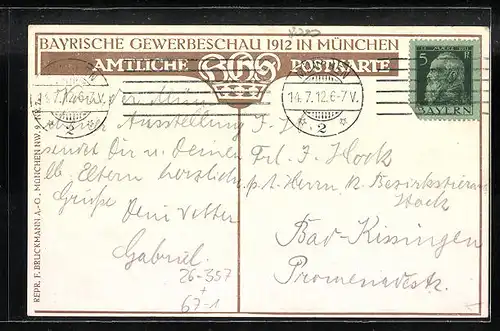 BAYRISCHE GEWERBESCHAU 1912 IN MÜNCHEN
AMTLICHE POSTKARTE
MÜNCHEN
14.7.12.6-7V.
2
5
BAYERN
Von der Münchener
Ausstellung
sendet Dir u Deinen
lb. Eltern herzliche
Grüße
Dein Vetter
Gabriel.
26-357
+
67-1
Frl. F. Hock
p. A. Herrn K. Bezirkstierarzt
Hock
Bad-Kissingen
Promenadestr.
REPR. F. BRUCKMANN A.-G., MÜNCHEN NW. 9